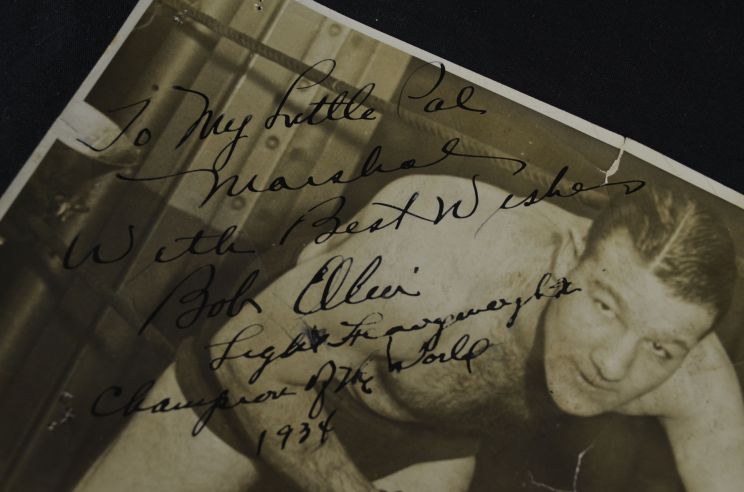 To My Little Pal
Marshal
With Best Wishes
Bob Olin
Light Heavyweight
Champion of the World
1934